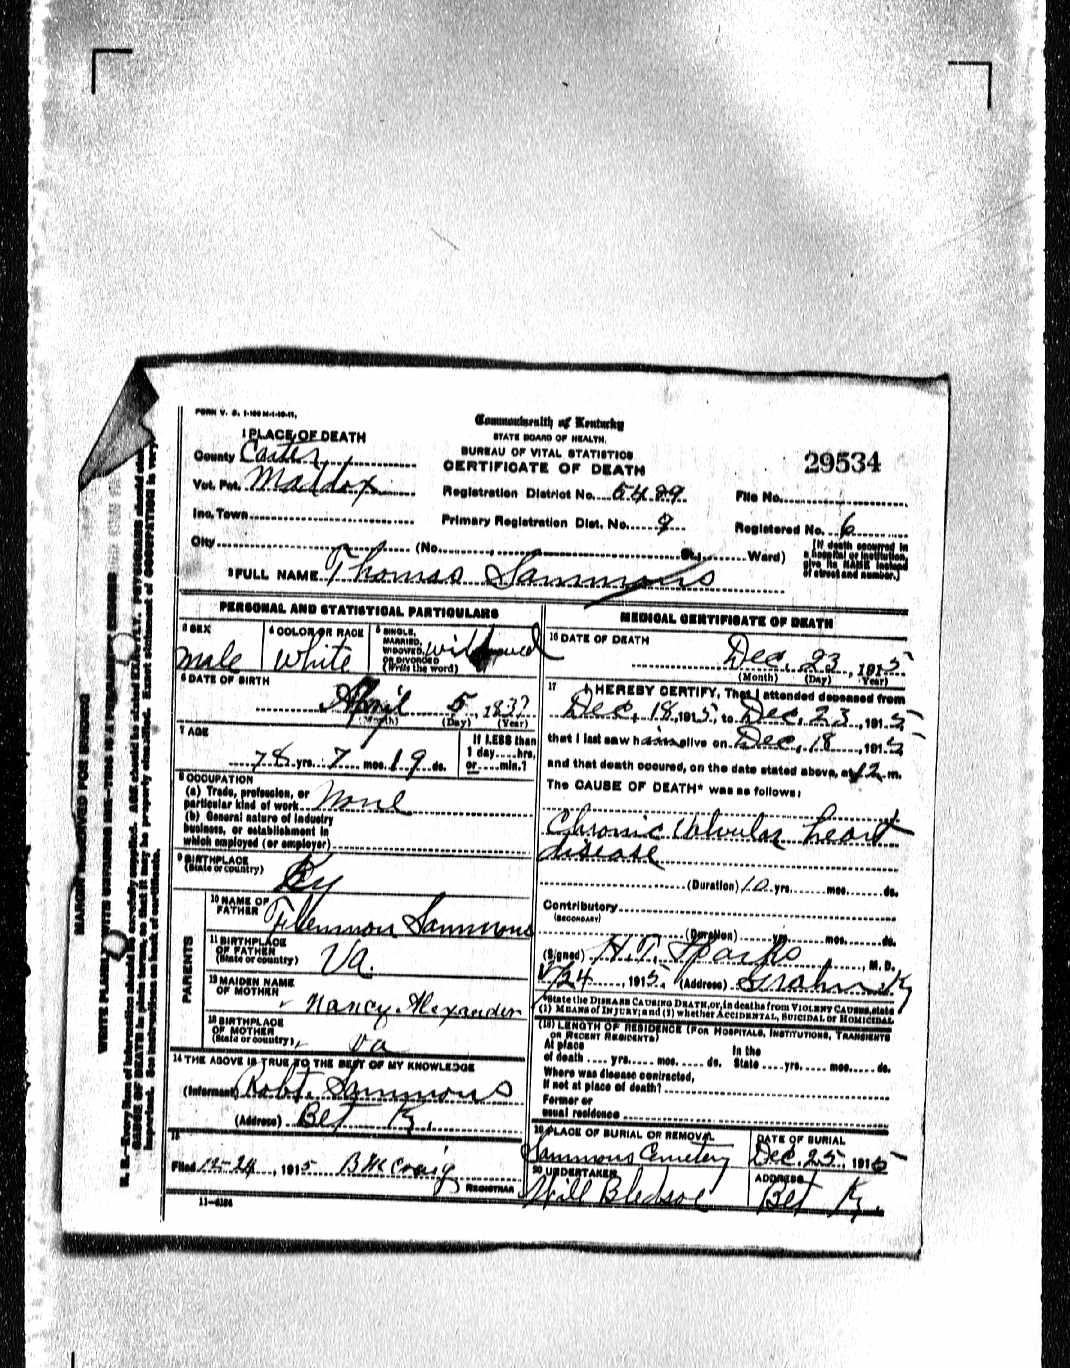 FORM V. S. 1-100 M-1-10-11.
Commonwealth of Kentucky
STATE BOARD OF HEALTH.
BUREAU OF VITAL STATISTICS
CERTIFICATE OF DEATH
29534
1 PLACE OF DEATH
County Carter
Vot. Pct. Maddox
Inc. Town
City (No. , St.; Ward)
Registration District No. 5489
Primary Registration Dist. No. 9
File No.
Registered No. 6
[If death occurred in
a hospital or institution,
give its NAME instead
of street and number.]
2 FULL NAME Thomas Sammons
PERSONAL AND STATISTICAL PARTICULARS
3 SEX
male
4 COLOR OR RACE
White
5 SINGLE,
MARRIED,
WIDOWED,
OR DIVORCED
(Write the word)
widowed
6 DATE OF BIRTH
April 5, 1837
(Month) (Day) (Year)
7 AGE
78 yrs. 7 mos. 19 ds.
If LESS than
1 day....hrs.
or....min.?
8 OCCUPATION
(a) Trade, profession, or
particular kind of work None
(b) General nature of industry
business, or establishment in
which employed (or employer)
9 BIRTHPLACE
(State or country) Ky
PARENTS
10 NAME OF
FATHER Flemmon Sammons
11 BIRTHPLACE
OF FATHER
(State or country) Va.
12 MAIDEN NAME
OF MOTHER Nancy Alexander
13 BIRTHPLACE
OF MOTHER
(State or country) Va
14 THE ABOVE IS TRUE TO THE BEST OF MY KNOWLEDGE
(Informant) Robt. Sammons
(Address) Bet Ky.
15
Filed 12-24, 1915 B McCraig
REGISTRAR
11-6184
MEDICAL CERTIFICATE OF DEATH
16 DATE OF DEATH
Dec. 23, 1915
(Month) (Day) (Year)
17 I HEREBY CERTIFY, That I attended deceased from
Dec. 18, 1915, to Dec. 23, 1915,
that I last saw him alive on Dec. 18, 1915
and that death occured, on the date stated above, at 12 m.
The CAUSE OF DEATH* was as follows:
Chronic Valvular heart
disease
(Duration) 10 yrs. mos. ds.
Contributory
(SECONDARY)
(Duration) yrs. mos. ds.
(Signed) H. T. Sparks, M. D.
/24, 1915. (Address) Grahn Ky
*State the DISEASE CAUSING DEATH, or, in deaths from VIOLENT CAUSES, state
(1) MEANS of INJURY; and (2) whether ACCIDENTAL, SUICIDAL or HOMICIDAL
(18) LENGTH OF RESIDENCE (FOR HOSPITALS, INSTITUTIONS, TRANSIENTS
OR RECENT RESIDENTS)
At place In the
of death .... yrs. .... mos. .... ds. State .... yrs. .... mos. .... ds.
Where was disease contracted,
if not at place of death?
Former or
usual residence
19 PLACE OF BURIAL OR REMOVAL
Sammons Cemetery
DATE OF BURIAL
Dec. 25, 1915
20 UNDERTAKER
Will Bledsoe
ADDRESS
Bet Ky.